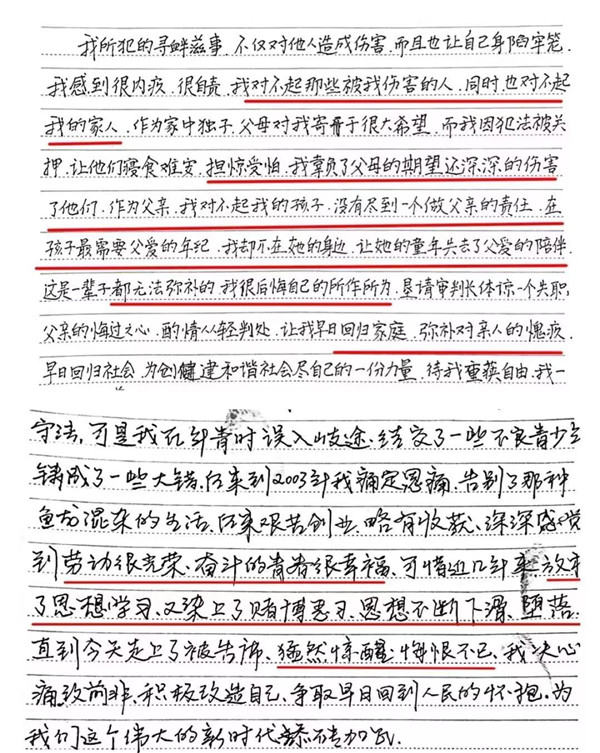 我所犯的寻衅滋事,不仅对他人造成伤害,而且也让自己身陷牢笼.
我感到很内疚.很自责.我对不起那些被我伤害的人.同时,也对不起
我的家人.作为家中独子.父母对我寄予很大希望.而我因犯法被关
押.让他们寝食难安.担惊受怕.我辜负了父母的期望还深深的伤害
了他们.作为父亲.我对不起我的孩子.没有尽到一个做父亲的责任.在
孩子最需要父爱的年纪.我却不在她的身边.让她的童年失去了父爱的陪伴.
这是一辈子都无法弥补的.我很后悔自己的所作所为.恳请审判长体谅一个失职
父亲的悔过之心.酌情从轻判处.让我早日回归家庭.弥补对亲人的愧疚.
早日回归社会.为创健建和谐社会尽自己的一份力量.待我重获自由.我一
守法,可是我在年青时误入歧途.结交了一些不良青少年
铸成了一些大错,后来到2003年我痛定思痛.告别了那种
鱼龙混杂的生活,后来艰苦创业.略有收获、深深感觉
到劳动很光荣、奋斗的青春很幸福、可惜近几年来放弃
了思想学习、又染上了赌博恶习、思想不断下滑、堕落.
直到今天走上了被告席、猛然惊醒、悔恨不已、我决心
痛改前非、积极改造自己、争取早日回到人民的怀抱、为
我们这个伟大的新时代添砖加瓦.